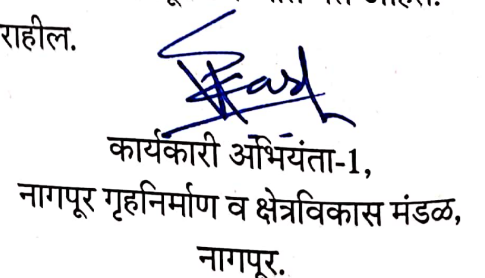 राहील.
कार्यकारी अभियंता-1,
नागपूर गृहनिर्माण व क्षेत्रविकास मंडळ,
नागपूर.